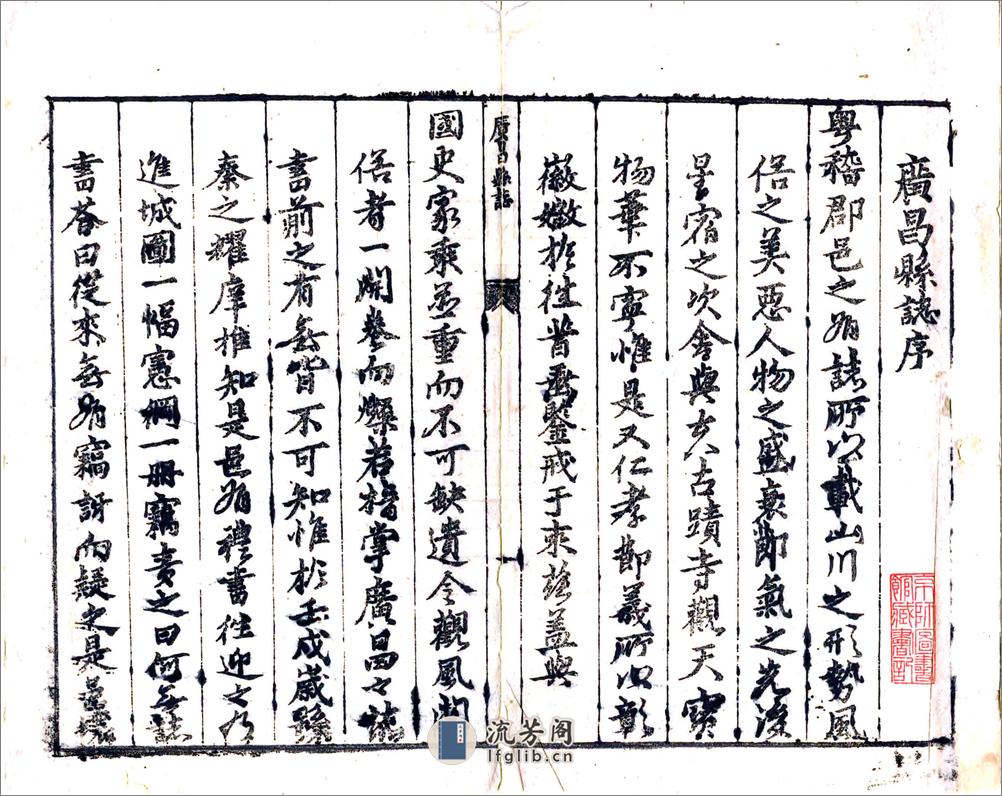 廣昌縣誌序
粵稽郡邑之有誌所以載山川之形勢風
俗之美惡人物之盛衰節氣之先後
星宿之次舍與夫古蹟寺觀天寶
物華不寧惟是又仁孝節義所以彰
徽媺於往昔垂鑒戒于來茲蓋與
廣昌縣誌
國史家乘並重而不可缺遺令觀風問
俗者一開卷而燦若指掌廣昌之誌
書前之有無皆不可知惟於壬戌歲縣
秦之耀摩推知是邑有禮書往迎之乃
進城圖一幅憲綱一冊竊責之曰何無誌
書答曰從來無有竊訝而疑之是邑
京師圖書館藏書記
流芳阁
lfglib.cn